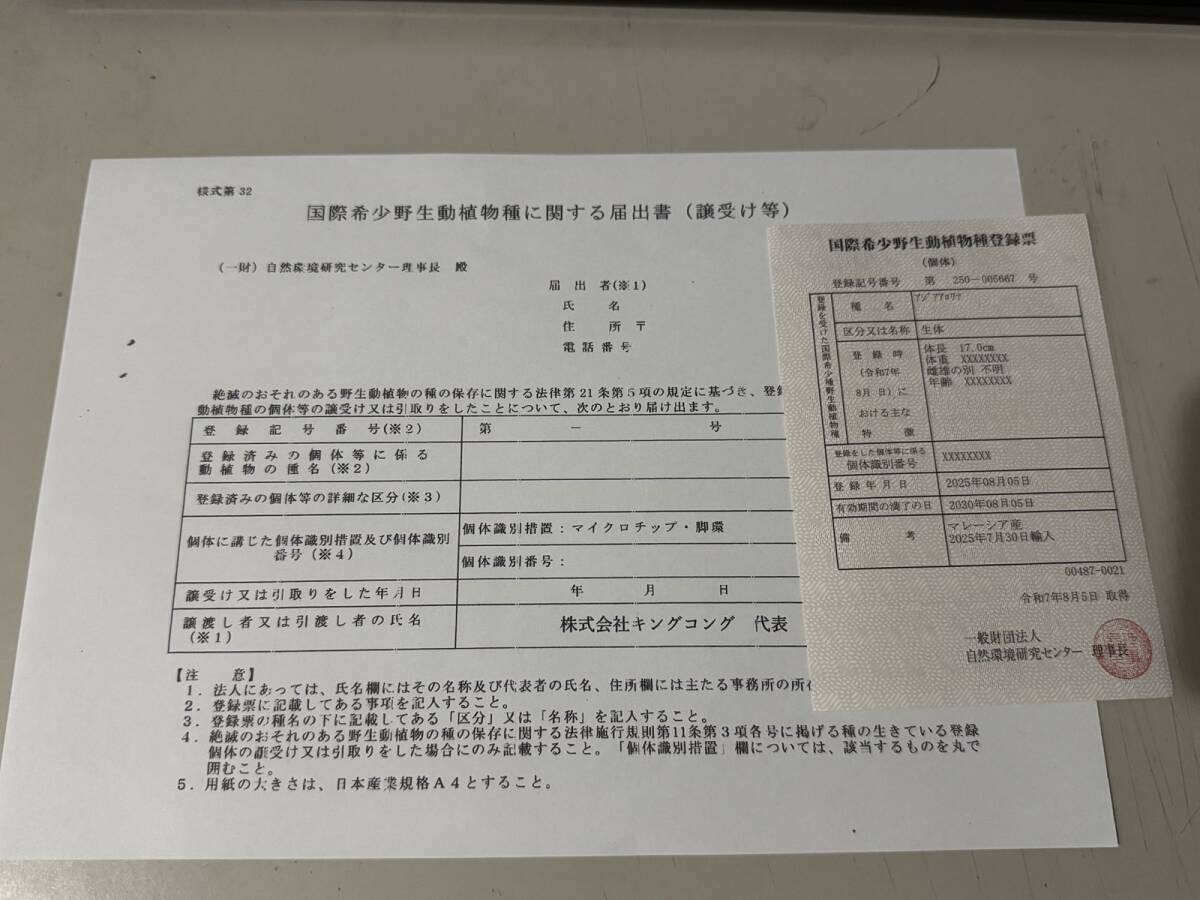 様式第32
国際希少野生動植物種に関する届出書（譲受け等）
（一財）自然環境研究センター理事長　殿
届　出　者(※1)
氏　　名
住　　所　〒
電話番号
絶滅のおそれのある野生動植物の種の保存に関する法律第21条第5項の規定に基づき、登録
動植物種の個体等の譲受け又は引取りをしたことについて、次のとおり届け出ます。
登　録　記　号　番　号(※2)
第　　　－　　　号
登録済みの個体等に係る
動植物の種名(※2)
登録済みの個体等の詳細な区分(※3)
個体に講じた個体識別措置及び個体識別
番号(※4)
個体識別措置：マイクロチップ・脚環
個体識別番号：
譲受け又は引取りをした年月日
年　　　月　　　日
譲渡し者又は引渡し者の氏名
(※1)
株式会社キングコング　代表
【注　意】
1．法人にあっては、氏名欄にはその名称及び代表者の氏名、住所欄には主たる事務所の所在
2．登録票に記載してある事項を記入すること。
3．登録票の種名の下に記載してある「区分」又は「名称」を記入すること。
4．絶滅のおそれのある野生動植物の種の保存に関する法律施行規則第11条第3項各号に掲げる種の生きている登録
個体の譲受け又は引取りをした場合にのみ記載すること。「個体識別措置」欄については、該当するものを丸で
囲むこと。
5．用紙の大きさは、日本産業規格A4とすること。
国際希少野生動植物種登録票
（個体）
登録記号番号　第　250-005667　号
登録を受けた国際希少種野生動植物種
種　名
アジアアロワナ
区分又は名称
生体
登録時
(令和7年
8月 日)に
おける主な
特　徴
体長　17.0cm
体重　XXXXXXXX
雌雄の別　不明
年齢　XXXXXXXX
登録をした個体等に係る
個体識別番号
XXXXXXXX
登録年月日
2025年08月05日
有効期間の満了の日
2030年08月05日
備　考
マレーシア産
2025年7月30日輸入
00487-0021
令和7年8月5日 取得
一般財団法人
自然環境研究センター　理事長